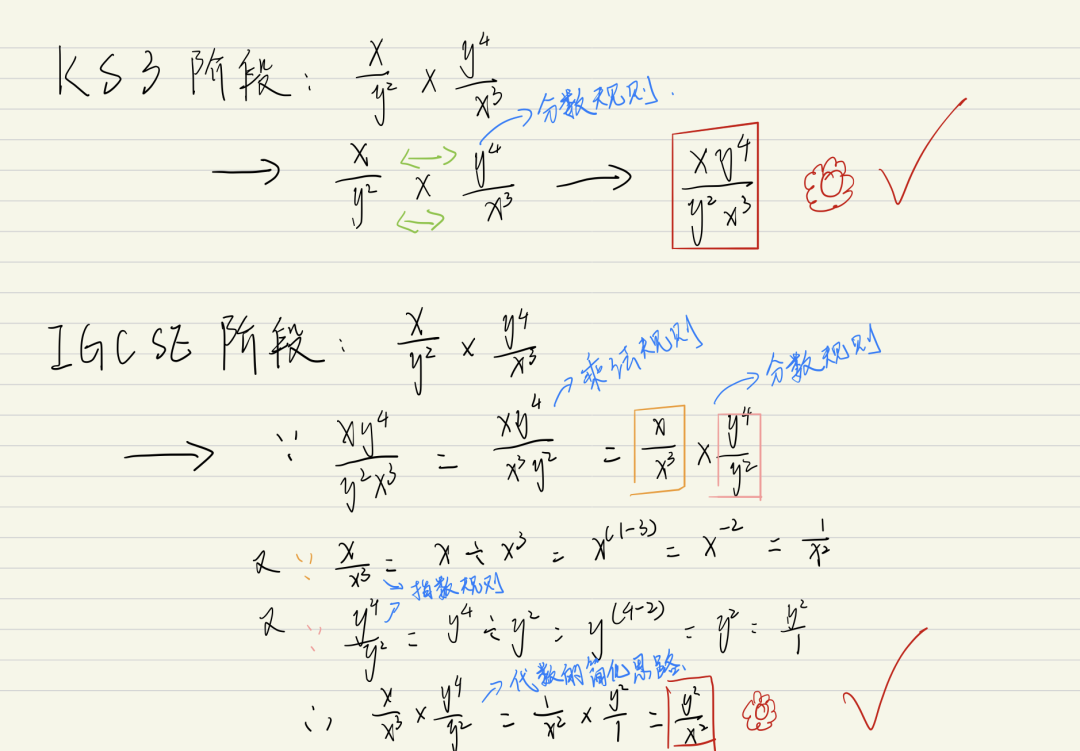 KS3 阶段: x/y² × y⁴/x³
分数规则.
→ x/y² × y⁴/x³ → xy⁴/y²x³
IGCSE 阶段: x/y² × y⁴/x³
乘法规则 分数规则
→ ∵ xy⁴/y²x³ = xy⁴/x³y² = x/x³ × y⁴/y²
又 ∵ x/x³ = x ÷ x³ = x⁽¹⁻³⁾ = x⁻² = 1/x²
指数规则
又 ∵ y⁴/y² = y⁴ ÷ y² = y⁽⁴⁻²⁾ = y² = y²/1
代数的简化思路.
∴ x/x³ × y⁴/y² = 1/x² × y²/1 = y²/x²